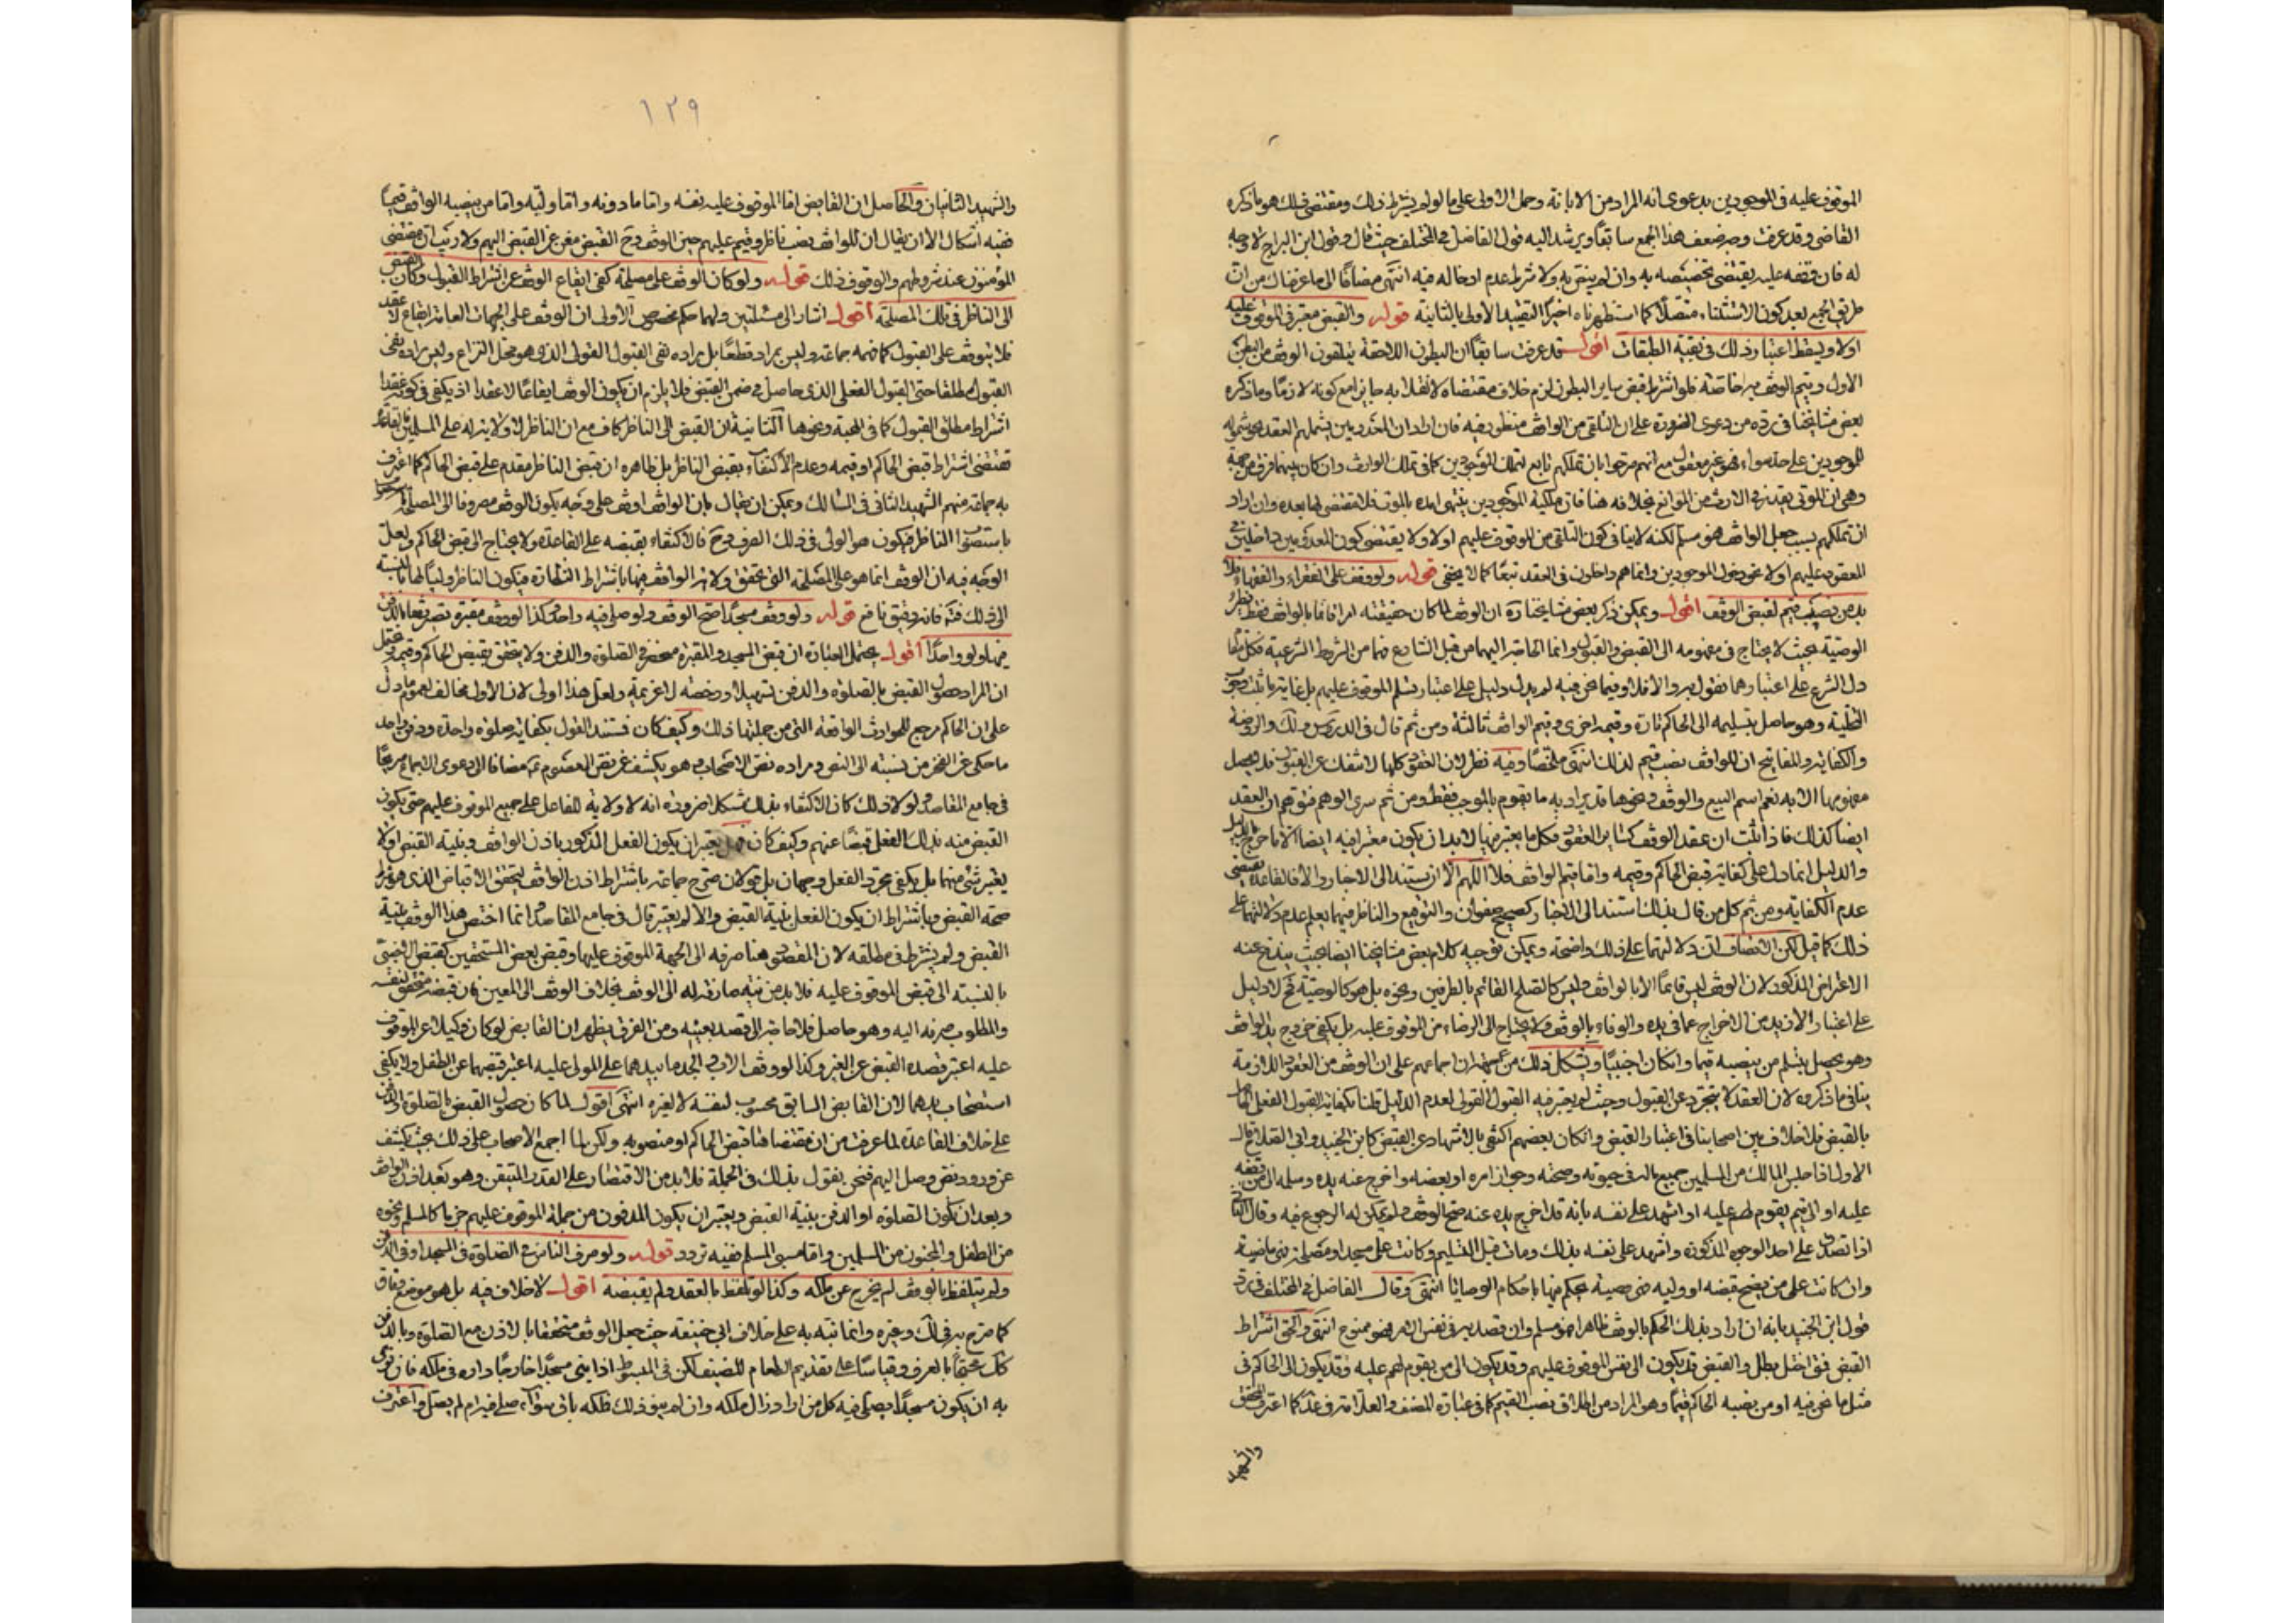 الموقوف عليه في الموجودين بدعوى انه المراد من الابانة وحمل الاولى على ما لو لم يشترط ذلك ومقتضى ذلك هو ما ذكره
القاضي وقد عرفت وجه ضعف هذا الجمع سابقا ويرشد اليه قول الفاضل في المختلف حيث قال وقول ابن البراج لا وجه
له فان وقفه عليه يقتضي تخصيصه به وان لم ينص به ولا شرط عدم ادخاله فيه انتهى مضافا الى ما عرفناك من ان
طريق الجمع بعد كون الاستثناء متصلا كما استظهرناه اخيرا التقييد الاولى بالثانية قوله والقبض معتبر في الموقوف عليه
اولا ويسقط اعتبار ذلك في بقية الطبقات اقول قد عرفت سابقا ان البطون اللاحقة يتلقون الوقف من البطن
الاول ويتم الوقف به خاصة فلو اشترط قبض ساير البطون لزم خلاف مقتضاه لانقلابه جايزا مع كونه لازما وما ذكره
بعض مشايخنا في رده من دعوى الضرورة على ان التلقي من الواقف منظور فيه فان اراد ان المعدومين يشملهم العقد نحو شموله
للموجودين على حد سواء فهو غير معقول مع انهم صرحوا بان تملكهم تابع لتملك الموجودين كما في تملك الوارث وان كان بينهما فرق من جهة
وهي ان الموتى بعد في الارث من الموانع بخلافه هنا فان ملكية الموجودين ينتهي امده بالموت فلا مقتضى لما بعده وان اراد
ان تملكهم بسبب جعل الواقف هو مسلم لكنه لا ينافي كون التلقي من الموقوف عليهم اولا ولا يقتضي كون المعدومين داخلين في
المعقود عليهم اولا نحو دخول الموجودين وانما هم داخلون في العقد تبعا كما لا يخفى قوله ولو وقف على الفقراء والفقهاء فلا
بد من نصب قيم لقبض الوقف اقول ويمكن ذكر بعض مشايخنا رة ان الوقف لما كان حقيقته امرا قائما بالواقف فقط نظير
الوصية بحيث لا يحتاج في مفهومه الى القبض والقبول وانما الحاجة اليهما من قبل الشارع فهما من الشروط الشرعية فكل ما
دل الشرع على اعتبارهما نقول به والا فلا وفيما نحن فيه لم يدل دليل على اعتبار تسلم الموقوف عليهم بل غاية ما ثبت وجوب
التخلية وهو حاصل بتسليمه الى الحاكم تارة وقيمه اخرى وقيم الواقف ثالثة ومن ثم قال في الدروس ولك والروضة
والكفاية والمفاتيح ان للواقف نصب قيم لذلك انتهى ملخصا وفيه نظر لان العقود كلها لا تنفك عن القبول فلا يحصل
مفهومها الا به نعم اسم البيع والوقف ونحوها قد يراد به ما يقوم بالموجب فقط ومن ثم سرى الوهم فتوهم ان العقد
ايضا كذلك فاذا ثبت ان عقد الوقف كساير العقود فكل ما يعتبر فيها لا بد ان يكون معتبرا فيه ايضا الا ما خرج بالدليل
والدليل انما دل على كفاية قبض الحاكم وقيمه واما قيم الواقف فلا اللهم الا ان يستند الى الاخبار والا فالقاعدة تقتضي
عدم الكفاية ومن ثم كل من قال بذلك استند الى الاخبار كصحيح صفوان والتوقيع والناظر فيهما يعلم عدم دلالتهما على
ذلك كما قيل لكن الانصاف ان دلالتهما على ذلك واضحة ويمكن توجيه كلام بعض مشايخنا ايضا بحيث يندفع عنه
الاعتراض المذكور لان الوقف ليس قائما الا بالواقف وليس كالصلح القائم بالطرفين ونحوه بل هو كالوصية فح لا دليل
على اعتبار الازيد من الاخراج عما في يده والوفاء بالوقف ولا يحتاج الى الرضاء من الموقوف عليه بل يكفي خروج يد الواقف
وهو يحصل بتسلم من ينصبه قيما وان كان اجنبيا ويشكل ذلك من جهة ان اجماعهم على ان الوقف من العقود اللازمة
ينافي ما ذكروه لان العقد لا يتجرد عن القبول وحيث لم يعتبر فيه القبول القولى لعدم الدليل قلنا بكفاية القبول الفعلى
بالقبض بلا خلاف بين اصحابنا في اعتبار القبض وان كان بعضهم اكتفى بالاشهاد عن القبض كابن الجنيد وابى الصلاح قال
الاول اذا حبس المالك من المسلمين جميع ماله في حيوته وصحته وجواز امره او بعضه واخرج عنه يده وسلمه الى من وقفه
عليه او الى قيم يقوم لهم عليه او اشهد على نفسه بانه قد اخرج يده عنه صح الوقف ولم يكن له الرجوع فيه وقال الثاني
اذا تصدق على احد الوجوه المذكورة واشهد على نفسه بذلك ومات قبل التسليم وكانت على مسجد او مصلحة فهي ماضية
وان كانت على من يصح قبضه او وليه فهي وصية يحكم فيها باحكام الوصايا انتهى وقال الفاضل في المختلف في رد
قول ابن الجنيد بانه ان اراد بذلك الحكم بالوقف ظاهرا فهو مسلم وان قصد به في نفس الامر فهو ممنوع انتهى والحق اشتراط
القبض فمتى اختل بطل والقبض قد يكون الى نفس الموقوف عليهم وقد يكون الى من يقوم لهم عليه وقد يكون الى الحاكم في
مثل ما نحن فيه او من نصبه الحاكم قيما وهو المراد من اطلاق نصب القيم كما في عبارة المصنف والعلامة في عد كما اعترف المحقق
والشهيد
١٢٩
والشهيد الثانيان والحاصل ان القابض اما الموقوف عليه بنفسه واما ماذونه واما وليه واما من ينصبه الواقف قيما
ففيه اشكال الا ان يقال ان للواقف نصب ناظر وقيم عليهم حين الوقف وح القبض مغن عن القبض اليهم ولا ريب ان مقتضى
المؤمنون عند شروطهم والوقوف ذلك قوله ولو كان الوقف على مصلحة كفى ايقاع الوقف عن اشتراط القبول وكان القبض
الى الناظر في تلك المصلحة اقول اشار الى مسئلتين ولهما حكم مخصوص الاولى ان الوقف على الجهات العامة ايقاع لا عقد
فلا يتوقف على القبول كما فهمه جماعة وليس بمراد قطعا بل مراده نفى القبول القولى الذي هو محل النزاع وليس مراده نفى
القبول مطلقا حتى القبول الفعلى الذي حاصل في ضمن القبض فلا يلزم ان يكون الوقف ايقاعا لا عقدا اذ يكفي في كونه عقدا
اشتراط مطلق القبول كما في الهبة ونحوها الثانية ان القبض الى الناظر كاف مع ان الناظر لا ولاية له على المسلمين فالقاعدة
تقتضي اشتراط قبض الحاكم او قيمه وعدم الاكتفاء بقبض الناظر بل ظاهره ان قبض الناظر مقدم على قبض الحاكم كما اعترف
به جماعة منهم الشهيد الثاني في المسالك ويمكن ان يقال بان الواقف اوقف على وجه يكون الوقف مصروفا الى المصلحة
باستصواب الناظر فيكون هو الولى في ذلك الصرف وح فالاكتفاء بقبضه على القاعدة ولا يحتاج الى قبض الحاكم ولعل
الوجه فيه ان الوقف انما هو على المصلحة التي تتحقق ولاية الواقف فيها باشتراط النظارة فيكون الناظر وليا لها بالنسبة
الى ذلك فتم فانه دقيق نافع قوله ولو وقف مسجدا صح الوقف ولو صلى فيه واحد وكذا لو وقف مقبرة تصير وقفا بالدفن
فيها ولو واحدا اقول يحتمل العبارة ان قبض المسجد والمقبرة منحصر في الصلوة والدفن ولا يتحقق بقبض الحاكم وقيمه ويحتمل
ان المراد حصول القبض بالصلوة والدفن تسهيلا ورخصة لا عزيمة ولعل هذا اولى لان الاول مخالف لعموم ما دل
على ان الحاكم مرجع للحوادث الواقعة التي من جملتها ذلك وكيف كان فمستند القول بكفاية صلوة واحدة ودفن واحد
ما حكى عن الفخر من نسبته الى النص ومراده نص الاصحاب وهو يكشف عن نص المعصوم ع مضافا الى دعوى الاجماع صريحا
في جامع المقاصد ولولا ذلك كان الاكتفاء بذلك مشكلا ضرورة انه لا ولاية للفاعل على جميع الموقوف عليهم حتى يكون
القبض منه بذلك الفعل قبضا عنهم وكيف كان فهل يعتبر ان يكون الفعل المذكور باذن الواقف وبنية القبض او لا
يعتبر شئ منهما بل يكفي مجرد الفعل وجهان بل قولان صرح جماعة باشتراط اذن الواقف ليتحقق الاقباض الذي هو شرط
صحة القبض وباشتراط ان يكون الفعل بنية القبض والا لم يعتبر قال في جامع المقاصد انما اختص هذا الوقف بنية
القبض ولم يشترط في مطلقه لان المقصود هنا صرفه الى الجهة الموقوف عليها وقبض بعض المستحقين كقبض الاجنبي
بالنسبة الى قبض الموقوف عليه فلا بد من نية صارفة له الى الوقف بخلاف الوقف الى المعين فان قبضه متحقق لنفسه
والمطلوب صرفه اليه وهو حاصل فلا حاجة الى قصد يعينه ومن الفرق يظهر ان القابض لو كان وكيلا عن الموقوف
عليه اعتبر قصده القبض عن الغير وكذا لو وقف الاب او الجد ما بيدهما على المولى عليه اعتبر قبضهما عن الطفل ولا يكفي
استصحاب يدهما لان القابض السابق محسوب لنفسه لا لغيره انتهى اقول لما كان حصول القبض بالصلوة والدفن
على خلاف القاعدة لما عرفت من ان مقتضاها قبض الحاكم او منصوبه ولكن لما اجمع الاصحاب على ذلك بحيث يكشف
عن ورود نص وصل اليهم فنحن نقول بذلك في الجملة فلا بد من الاقتصار على القدر المتيقن وهو بعد اذن الواقف
وبعد ان يكون الصلوة او الدفن بنية القبض ويعتبر ان يكون المدفون من جملة الموقوف عليهم جزما كالمسلم ونحوه
من الطفل والمجنون من المسلمين واما مسبى المسلم ففيه تردد قوله ولو صرف الناس في الصلوة في المسجد او في الدفن
ولم يتلفظ بالوقف لم يخرج عن ملكه وكذا لو تلفظ بالعقد ولم يقبضه اقول لا خلاف فيه بل هو موضع وفاق
كما صرح به في لك وغيره وانما نبه به على خلاف ابي حنيفة حيث جعل الوقف متحققا بالاذن مع الصلوة وبالدفن
كك محتجا بالعرف وقياسا على تقديم الطعام للضيف لكن في المبسوط اذا بنى مسجدا خارجا داره في ملكه فان نوى
به ان يكون مسجدا يصلى فيه كل من اراد زال ملكه وان لم ينو ذلك فملكه باق سواء صلى فيه ام لم يصل واعترف